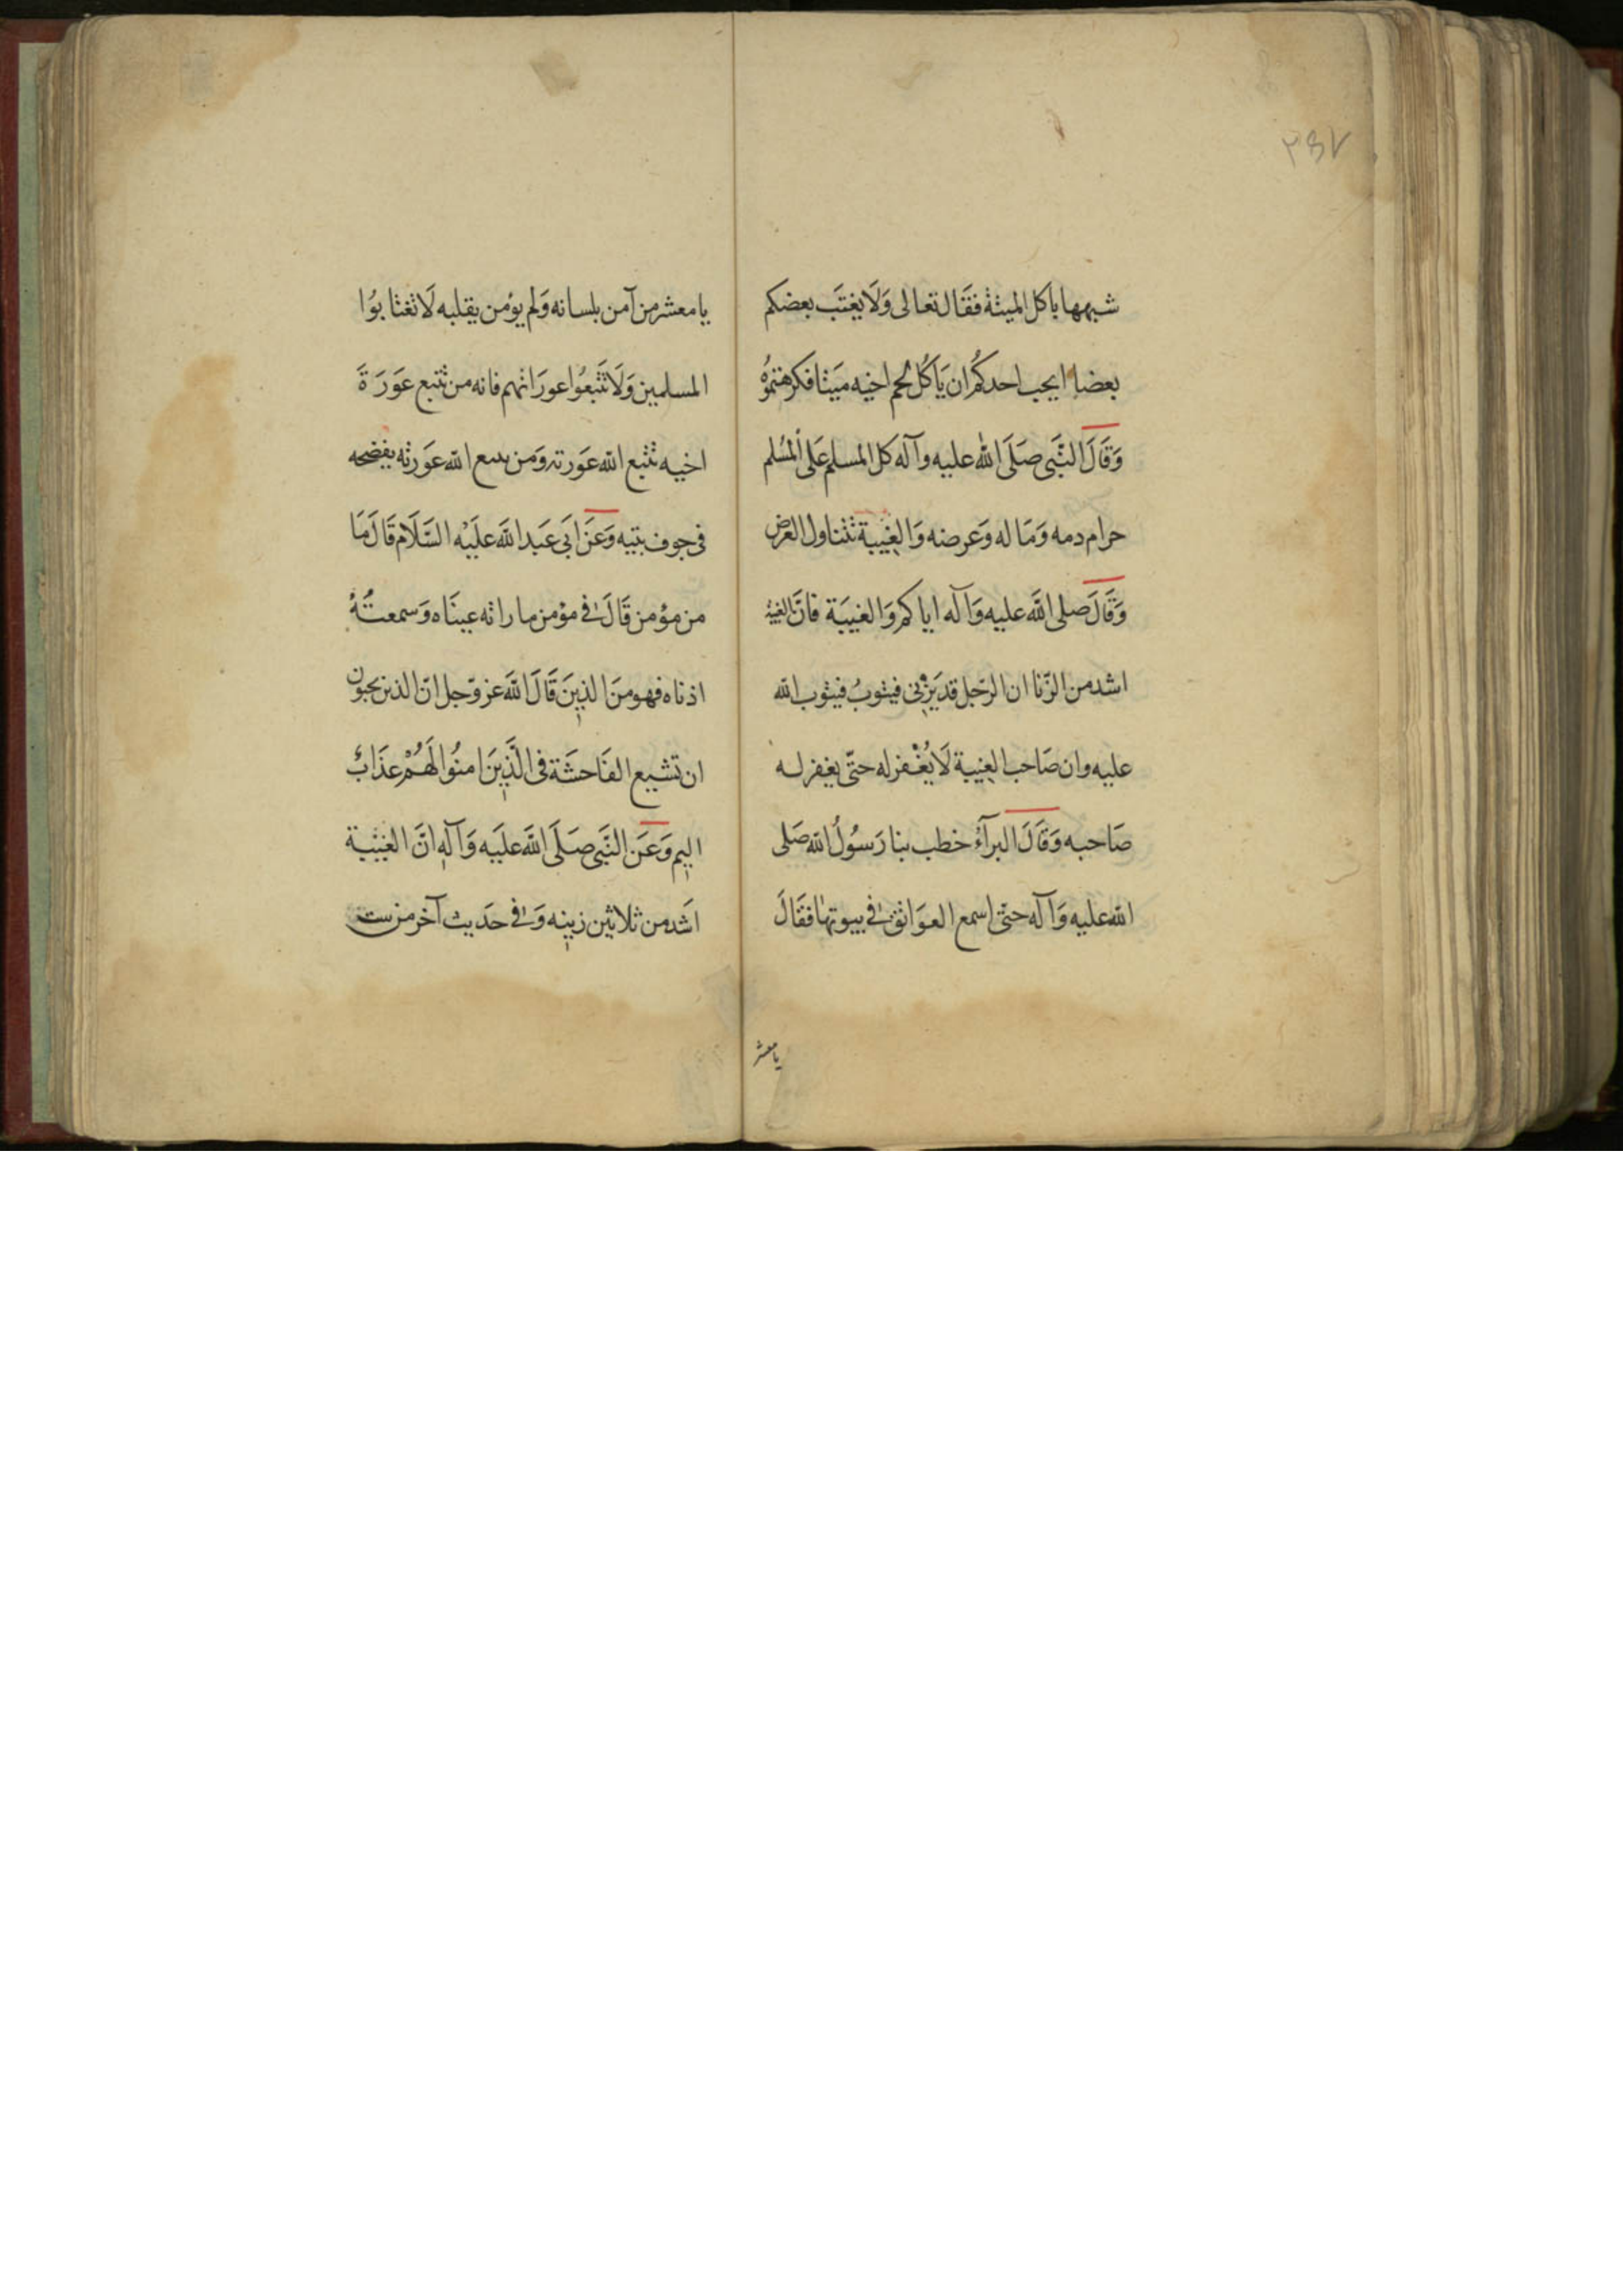 ۲۵۷
شبهها باكل الميتة فقَال تعالى وَلَا يغتَب بعضكم
بعضا ايحب احدكُم ان يَاكُل لحم اخيه ميَتا فكرهتموُه
وَقَالَ النَّبى صَلَى اللّٰه عليه وآله كل المسلم عَلى المُسلم
حرام دمه وَمَاله وَعرضه وَالغيبة تتناول العرض
وَقَالَ صلى اللَّه عليه وَآله اياكم وَالغيبَة فانَّ الغيبة
اشد من الزّنا ان الرّجل قد يَزني فيتوبُ فيتوب اللّه
عليه وان صَاحب الغيبة لَا يُغْفر له حتّى يغفر له
صَاحبه وَقَالَ البرآءُ خطب بنا رَسُولُ اللّه صَلى
اللّه عليه وَآله حتّى اسمع العوَاتق فى بيوتها فقَالَ
يا معشر
يا معشر من آمن بلسانه وَلم يؤمن بقلبه لَا تغتابوُا
المسلمين وَلَا تَتَّبعُوا عورَاتهم فانه من تتبع عَورَةَ
اخيه تتبع اللّه عَورته وَمن تتبع اللّه عَورته يفضحه
فى جوف بيته وَعَن ابَى عَبد اللَّه علَيْه السَّلَام قَالَ مَا
من مؤمن قَالَ فى مؤمن ما راته عينَاه وَسمعتُهُ
اذناه فهو منَ الذينَ قَالَ اللَّه عز وّجل انّ الذين يحبون
ان تشيع الفَاحشَة فى الَّذينَ امنُوا لَهُمْ عذَابٌ
اليم وَعَن النَّبى صَلَى اللَّه علَيه وَآله انَّ الغيبة
اشَد من ثلاثين زنيه وَفى حَديث آخر من ست